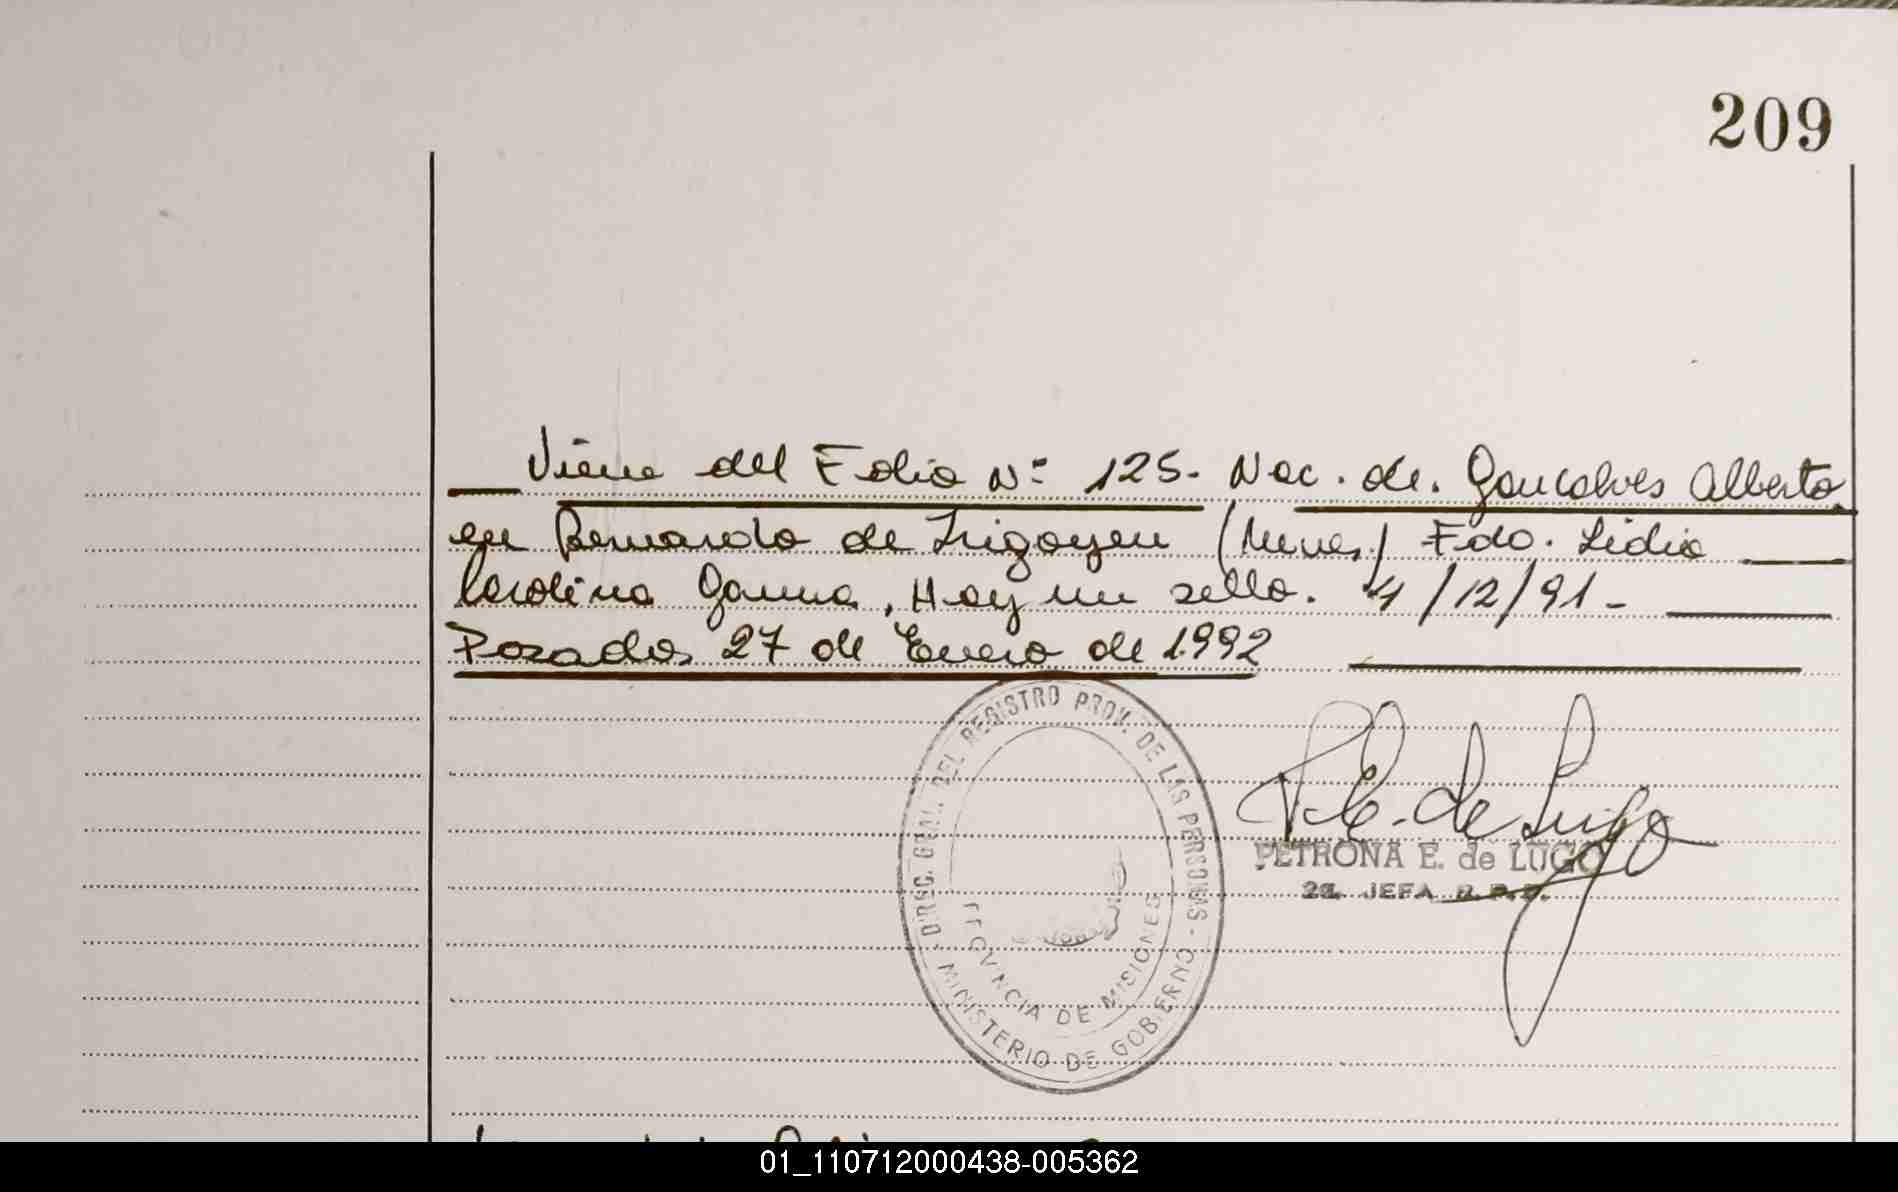 209
Viene del Folio Nº 125. Nac. de. Goncalves Alberto
en Bernardo de Irigoyen (Mnes) Fdo. Lidia
Carolina Gauna, Hay un sello. 4/12/91-
Posadas 27 de Enero de 1992
DIREC. GRAL. DEL REGISTRO PROV. DE LAS PERSONAS - MINISTERIO DE GOBIERNO
PROVINCIA DE MISIONES
P.E. de Lugo
PETRONA E. de LUGO
2a. JEFA
01_110712000438-005362